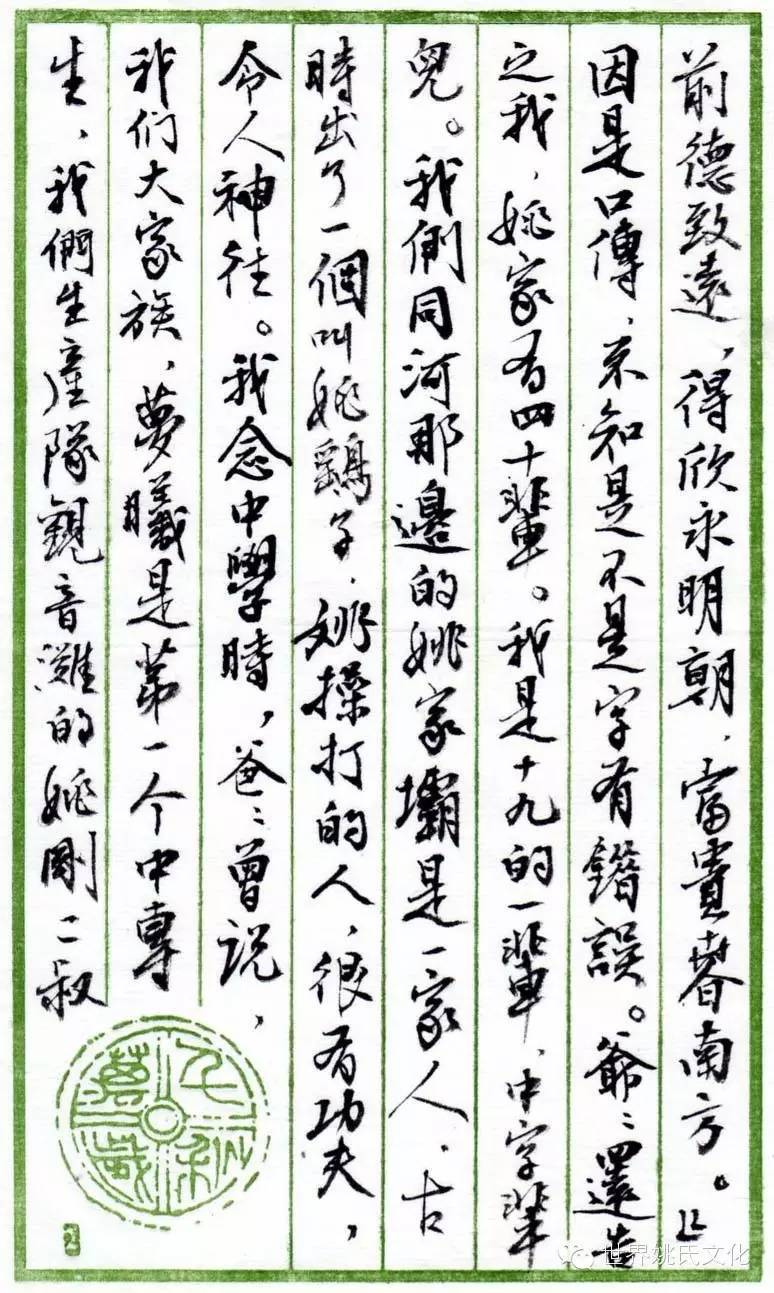 前德致遠，得欣永明朝，富貴春南方。」
因是口傳，不知是不是字有錯誤。爺〻還告
之我，姚家有四十輩。我是十九的一輩，中字輩
兒。我們同河那邊的姚家壩是一家人，古
時出了一個叫姚鷂子，姚操打的人，很有功夫，
令人神往。我念中學時，爸〻曾说，
我们大家族，夢曦是第一个中專
生，我們生產隊觀音灘的姚剛二叔
千秋萬歲
世界姚氏文化